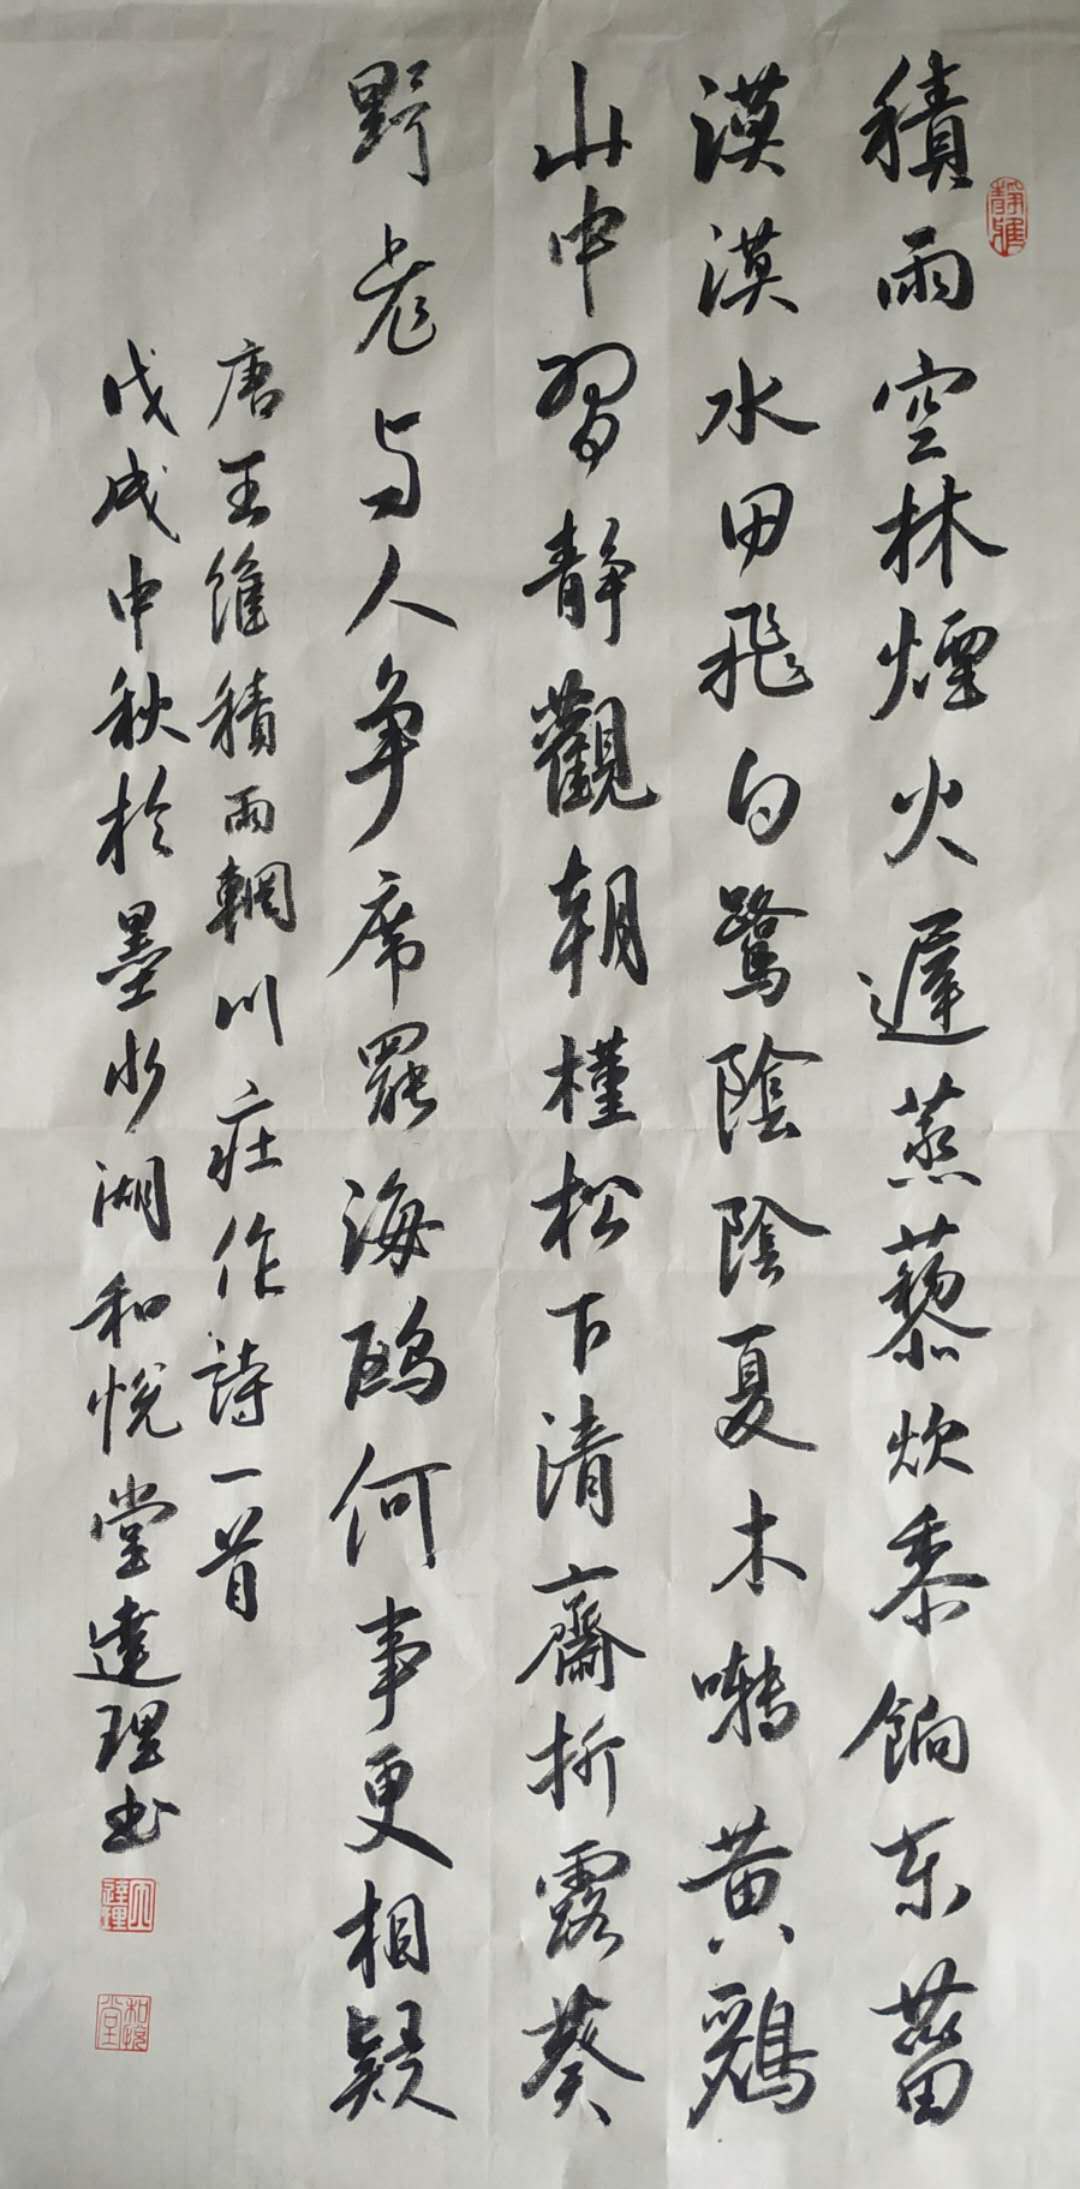 積雨空林煙火遲蒸藜炊黍餉东菑
漠漠水田飛白鷺陰陰夏木囀黄鸝
山中習静觀朝槿松下清齋折露葵
野老与人争席罷海鸥何事更相疑
唐王維積雨輞川莊作詩一首
戊戌中秋於墨水湖和悅堂達理书
静雅
達理
和悅堂